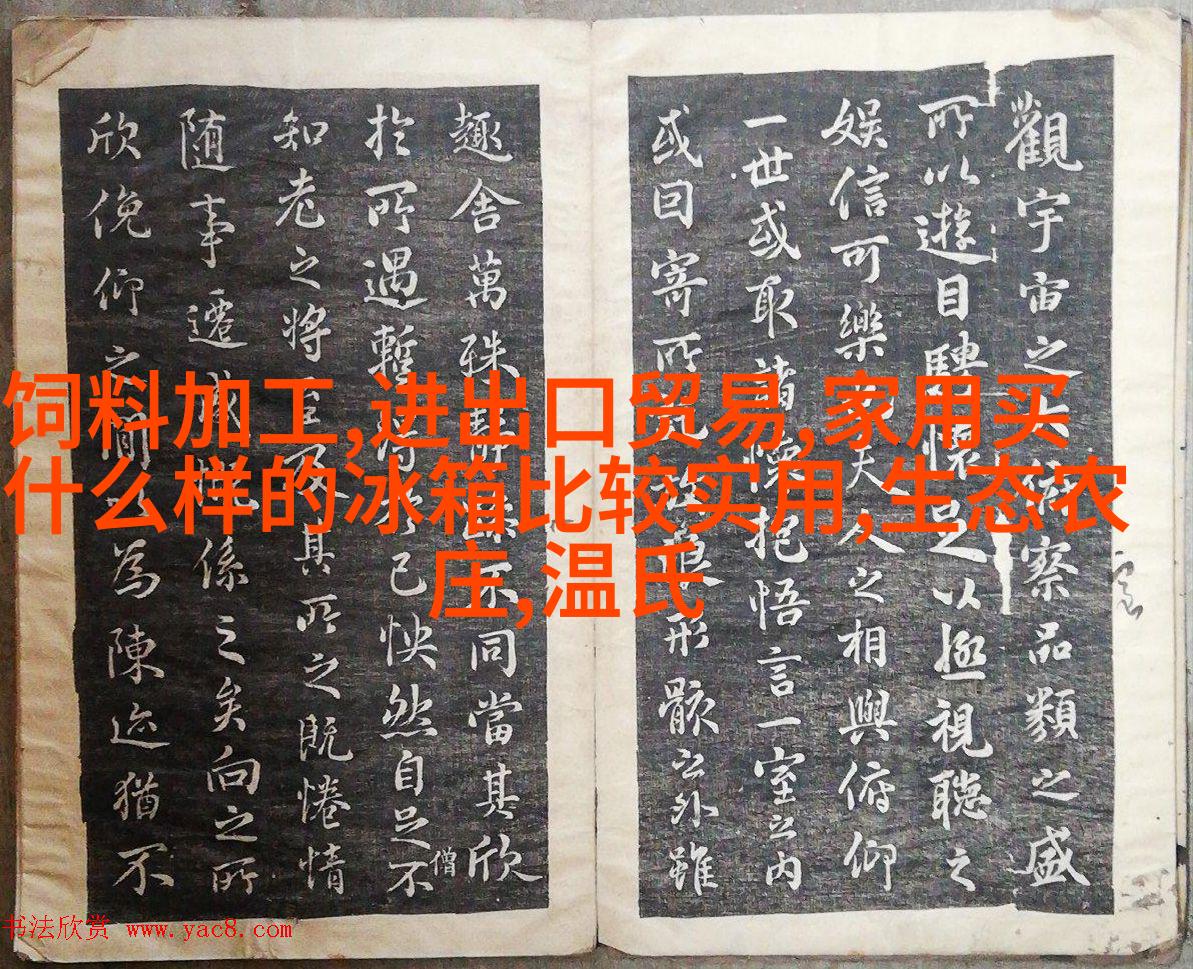 觀宇宙之大俯察品類之盛
所以遊目騁懷足以極視聽之
娛信可樂也夫人之相與俯仰
一世或取諸懷抱悟言一室之內
或因寄所託放浪形骸之外雖
趣舍萬殊靜躁不同當其欣
僧
於所遇暫得於己怏然自足不
知老之將至及其所之既惓情
随事遷感慨係之矣向之所
欣俛仰之閒以為陳迹猶不
饲料加工,进出口贸易,家用买
什么样的冰箱比较实用,生态农
庄,温氏
书法欣赏 www.yac8.com